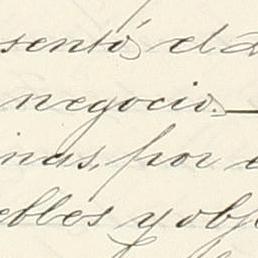 sentó, el d
negocio.—
inas, por e
ebles y obj